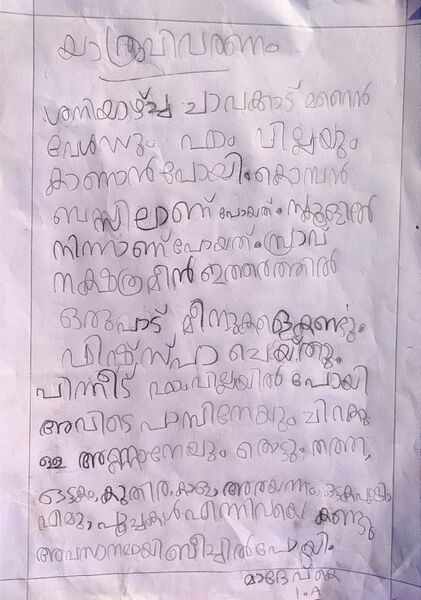 യാത്രവിവരണം
ശനിയാഴ്ച്ച ചാവക്കാട് മറൈൻ
വേൾഡും ഫാം വില്ലയും
കാണാൻ പോയി. കൊമ്പൻ
ബസ്സിലാണ് പോയത്. സ്കൂളിൽ
നിന്നാണ് പോയത്. സ്രാവ്
നക്ഷത്രമീൻ ഇത്തരത്തിൽ
ഒരുപാട് മീനുകളെകണ്ടു.
ഫിഷ്സ്പാ ചെയ്തു.
പിന്നീട് ഫാംവില്ലയിൽ പോയി
അവിടെ പാമ്പിനേയും ചിറകു
ള്ള അണ്ണാനേയും തൊട്ടു. തത്ത,
ഒട്ടകം, കുതിര, കാള, അരയന്നം, ഒട്ടകപക്ഷി
എമു, പൂച്ചകൾ എന്നിവയെ കണ്ടു
അവസാനമായി ബീച്ചിൽ പോയി.
1.A